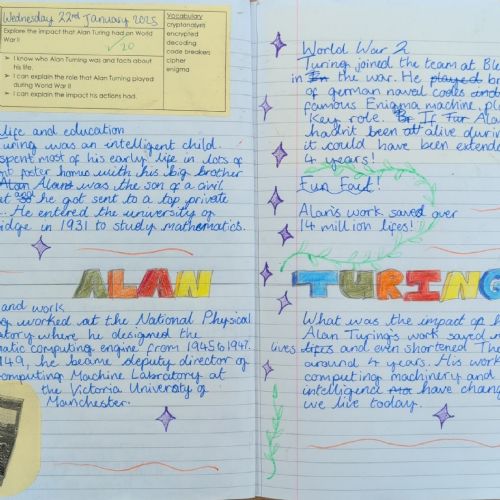 Wednesday 22nd January 2025
Explore the impact that Alan Turing had on World
War II
20
I know who Alan Turing was and facts about
his life.
I can explain the role that Alan Turing played
during World War II
I can explain the impact his actions had.
Vocabulary
cryptanalysis
encrypted
decoding
code breakers
cipher
enigma
life and education
uring was an intelligent child.
spent most of his early life in lots of
nt foster homes with his big brother
Alan Alan was the son of a civil
at and he got sent to a top private
He entered the university of
idge in 1931 to study mathematics.
ALAN
and work
ng worked at the National Physical
atory where he designed the
matic computing engine from 1945 to 1947.
949, he became deputy director of
computing Machine Laboratory at
the Victoria University of
Manchester.
World War 2
Turing joined the team at Ble
in the war. He played br
of german naval codes and
famous Enigma machine, pl
Key role. If Alan
hadn't been alive during
it could have been extende
4 years!
Fun Fact!
Alan's work saved over
14 million lifes!
TURING
What was the impact of h
Alan Turing's work saved m
lives lifes and even shortened The
around 4 years. His work
computing machinery and
intelligence have change
we live today.